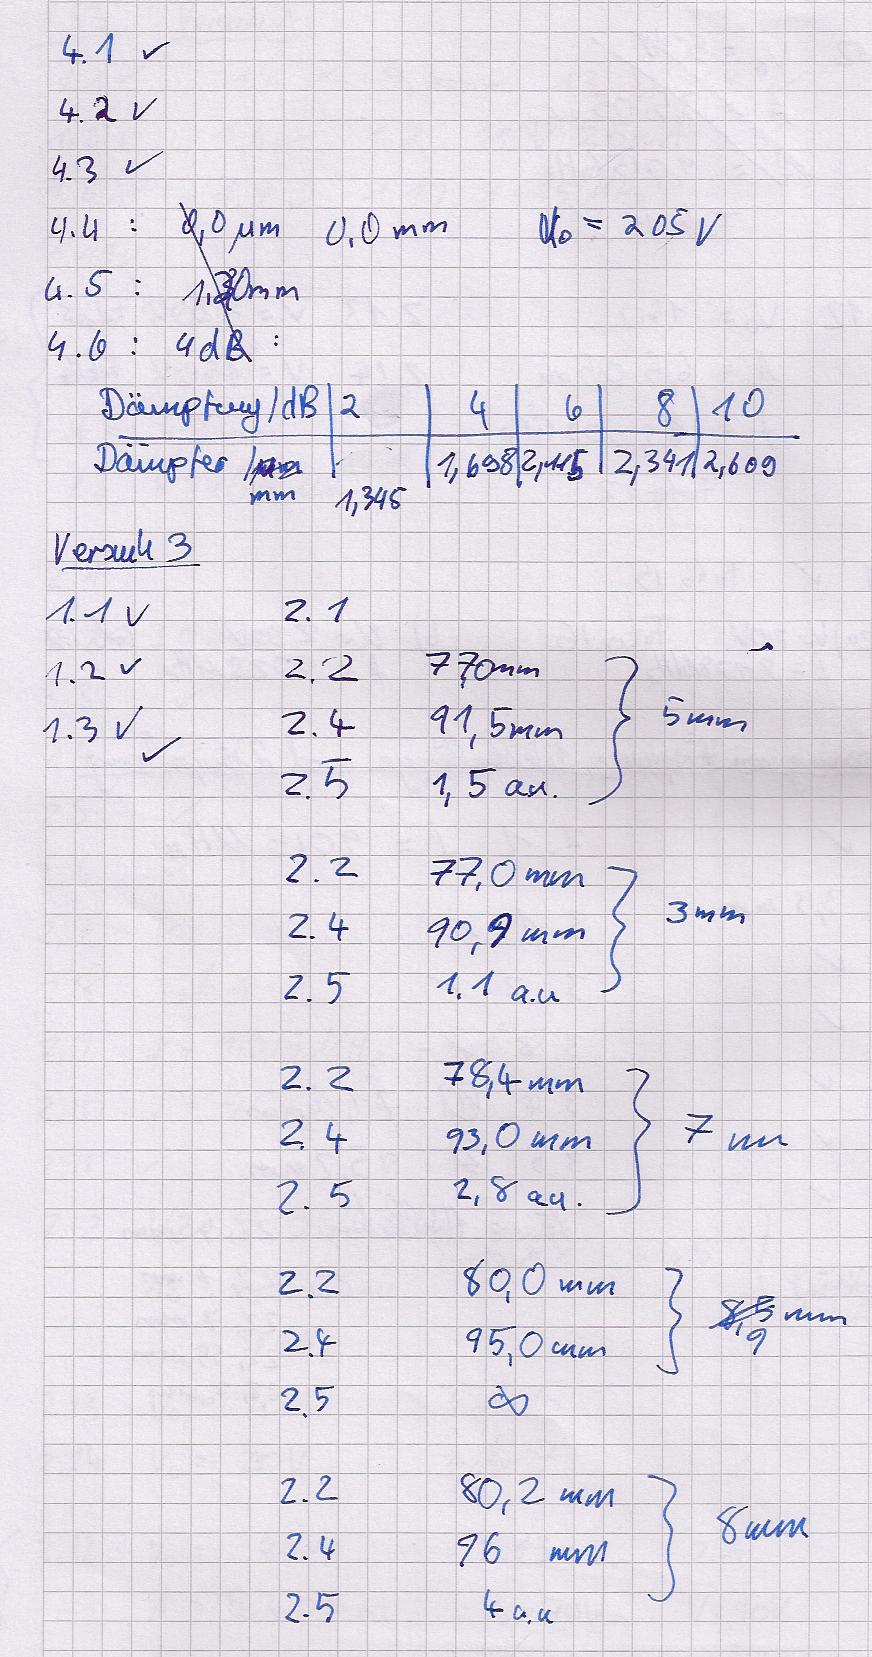 4.1 ✓
4.2 ✓
4.3 ✓
4.4 : 0,0 µm 0,0 mm U₀ = 205 V
4.5 : 1,30mm
4.6 : 4dB :
Dämpfung/dB | 2 | 4 | 6 | 8 | 10
Dämpfer /µm mm | 1,345 | 1,698 | 2,115 | 2,341 | 2,609
Versuch 3
1.1 ✓ 2.1
1.2 ✓ 2.2 77,0mm
1.3 ✓ ✓ 2.4 91,5mm } 5mm
2.5 1,5 a.u.
2.2 77,0 mm
2.4 90,9 mm } 3mm
2.5 1.1 a.u
2.2 78,4 mm
2.4 93,0 mm } 7 mm
2.5 2,8 a.u.
2.2 80,0 mm
2.4 95,0 mm } 9 mm
2.5 ∞
2.2 80,2 mm
2.4 96 mm } 8mm
2.5 4 a.u